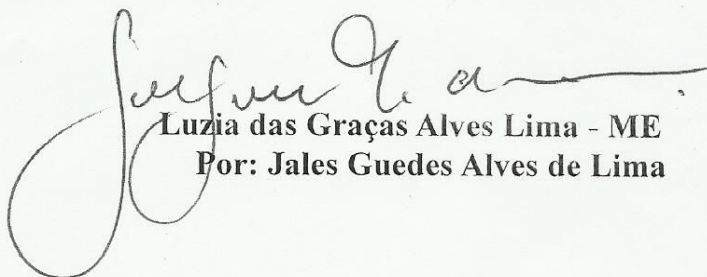 Luzia das Graças Alves Lima - ME
Por: Jales Guedes Alves de Lima